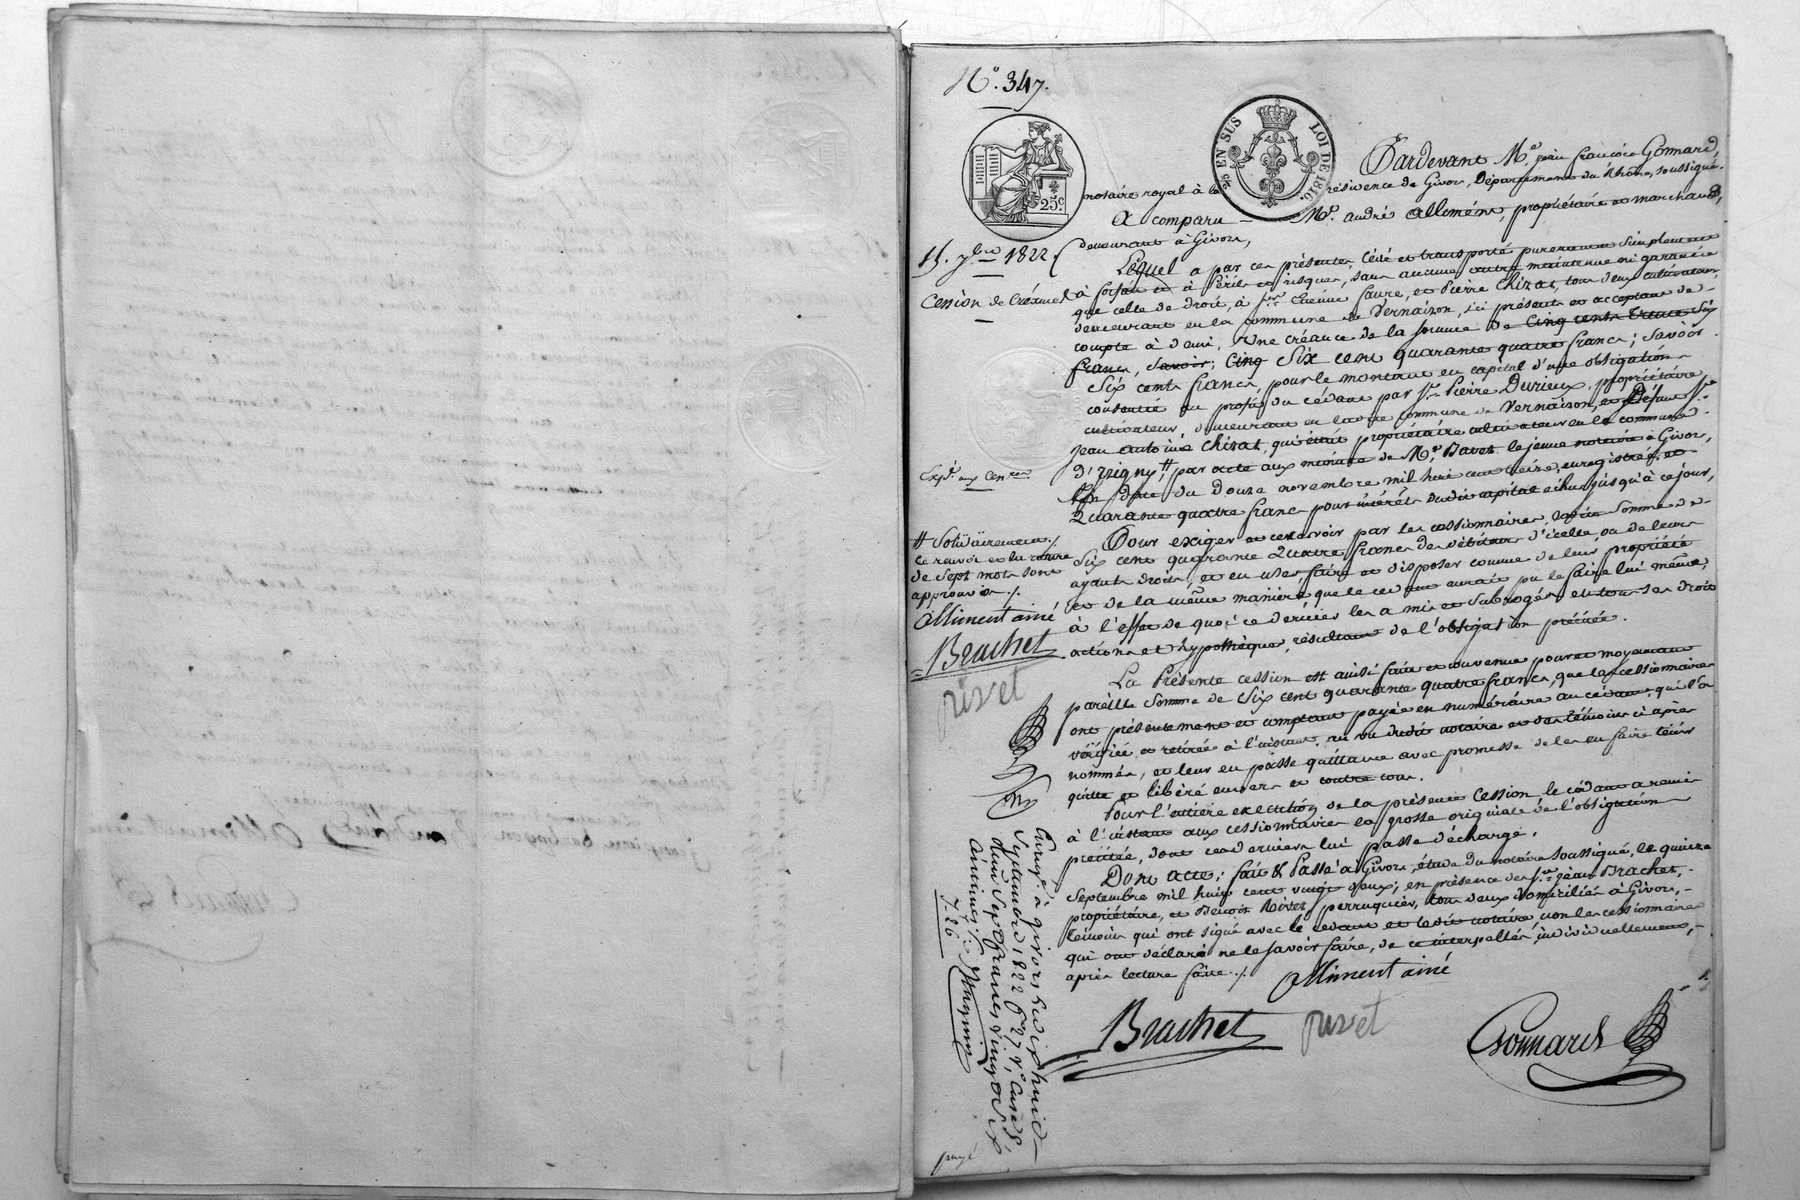 N.° 347.
2/5 EN SUS LOI DE 1816.
25c
Pardevant M.e jean françois Gonnard,
notaire royal à la résidence de Givors, Département du Rhône, soussigné.
A comparu M.r andré Alliment, propriétaire et marchand,
demeurant à Givors,
15. 7bre 1822.
Cession de Créance
Lequel a par ces présentes, Cédé et transporté purement simplement
à forfait et à Périls et risques, sans aucune autre maintenue ni garantie
que celle de droit, à srs Etienne faure, et Pierre Chizat, tous deux cultivateurs,
demeurant en la commune de Vernaison, ici présents et acceptans de
compte à demi, Une créance de la somme de Cinq cents trente six
francs, savoir; Cinq Six cent quarante quatre francs; savoir
Six cents francs, pour le montant en capital d'une obligation
consentie au profit du cédant par sr Pierre Durieux, propriétaire
cultivateur, demeurant en ladite commune de Vernaison, et Défunt sr
Jean antoine Chizat, qui était propriétaire cultivateur en la commune
D'yrigny, # par acte aux minutes de M.e Bavet le jeune notaire à Givors,
En date du Douze novembre mil huit cent treize, enregistré, et
Quarante quatre francs pour intérêts dudit capital echus jusqu'à ce jour,
Expé. aux Cenres
Pour exiger et recevoir par les cessionnaires, ladite somme de
Six cent quarante Quatre francs des débiteurs d'icelle, ou de leurs
ayants droits, et en user, faire et disposer comme de leur propriété
et de la même manière que le cédant aurait pu le faire lui même,
à l'effet de quoi ce dernier les a mis et subrogés en tous ses droits
actions et hypothèque, résultant de l'obligation précitée.
# Solidairement ./.
Ce renvoi et la rature
de sept mots sont
approuvés ./.
Alliment ainé
Brachet
rivet
La Présente cession est ainsi faite et convenue pour et moyennant
pareille somme de six cent quarante quatre francs, que les cessionnaires
ont présentement et comptant payée en numéraire au cédant qui l'a
vérifiée et retirée à l'instant, au vu dudit notaire et des témoins ci après
nommés, et leur en passe quittance avec promesse de les en faire tenir
quitte et libéré envers et contre tous.
Pour l'entière exécution de la présente Cession le cédant a remis
à l'instant aux cessionnaires la grosse originale de l'obligation
précitée, dont ces derniers lui passe décharge.
Dont acte; fait & Passé à Givors, étude du notaire soussigné, le quinze
Septembre mil huit cent vingt deux; en présence des srs jean Brachet,
propriétaire, et Benoit Rivet, perruquier, tous deux domiciliés à Givors,
témoins qui ont signé avec le cédant et ledit notaire, non les cessionnaires
qui ont déclaré ne le savoir faire, de ce interpellés individuellement,
après lecture faite ./.
Alliment ainé
Brachet
rivet
Gonnard
Enregé à givors le dix huit
Septembre 1822 f° 27, V° Cases
Reçu sept francs vingt six
centimes
7. 26